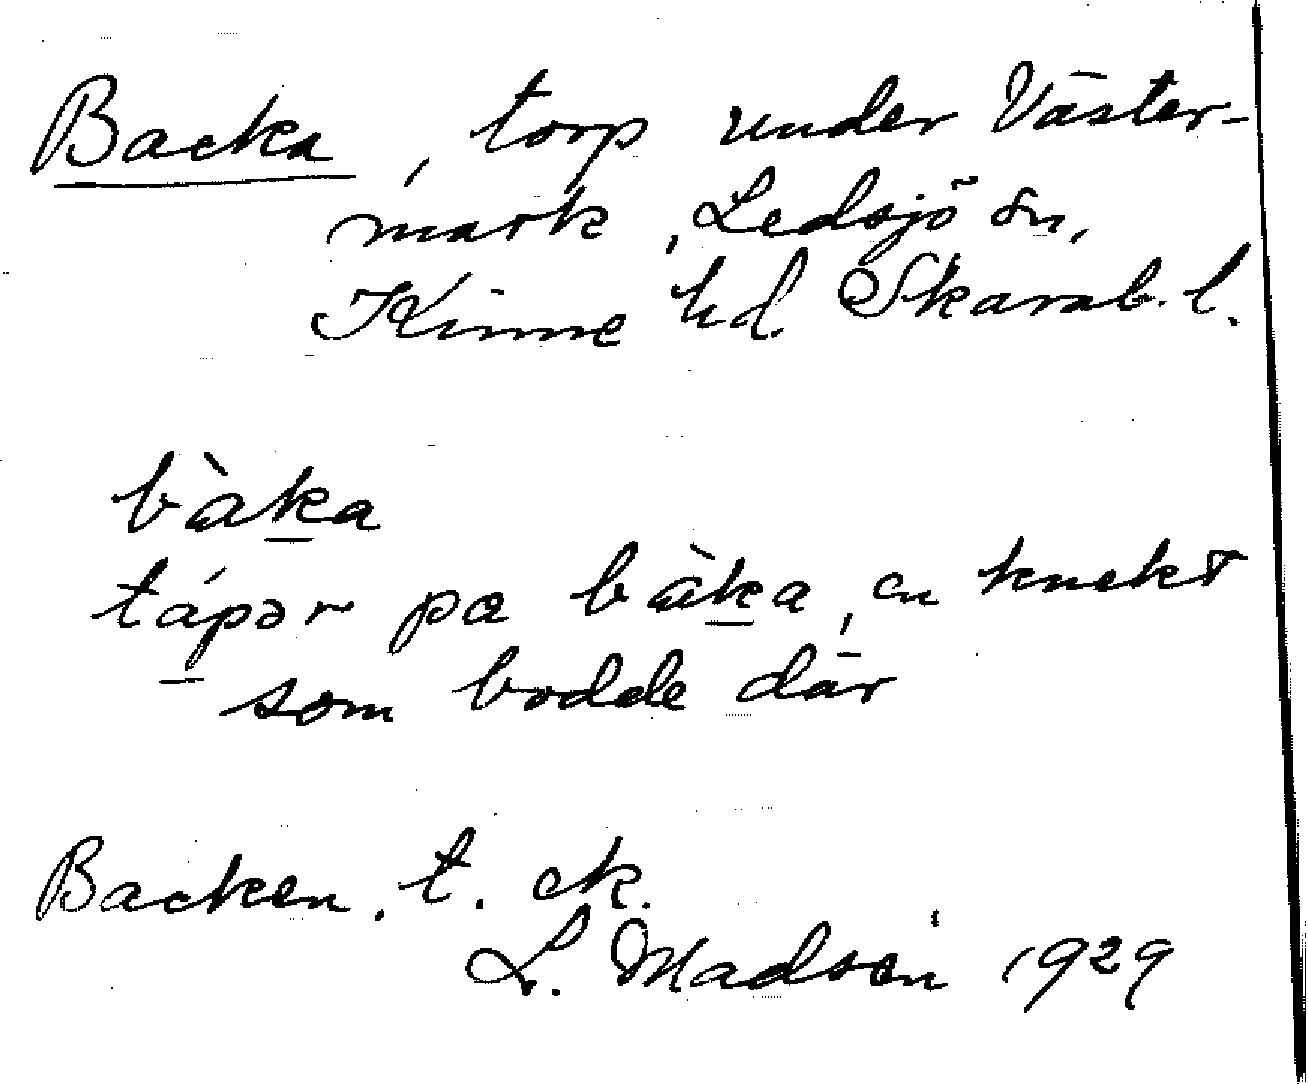 Backa, torp under Väster-
mark, Ledsjö sn,
Kinne hd. Skarab. l.
bàka
tápər pa bàka, en knekt
som bodde där
Backen. t. ek.
L. Madsén 1929